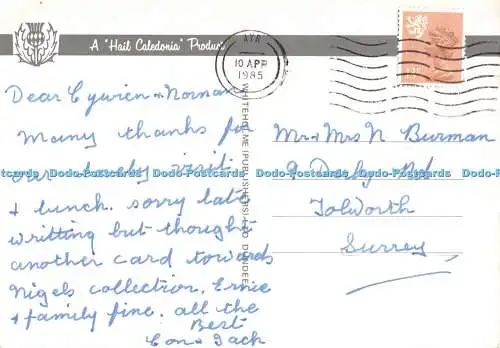 A "Hail Caledonia" Product
AYR
10 APR
1985
Dear Cywien & Norman
Many thanks for
our lovely visit
& lunch. sorry late
writting but thought
another card towards
Nigels collection. Ernie
& family fine. all the
Best
Con & Jack
WHITEHOLME (PUBLISHERS) LTD DUNDEE
Mr & Mrs N Burman
9 Derby Rd
Tolworth
Surrey
Dodo-Postcards Dodo-Postcards Dodo-Postcards Dodo-Postcards Dodo-Postcards